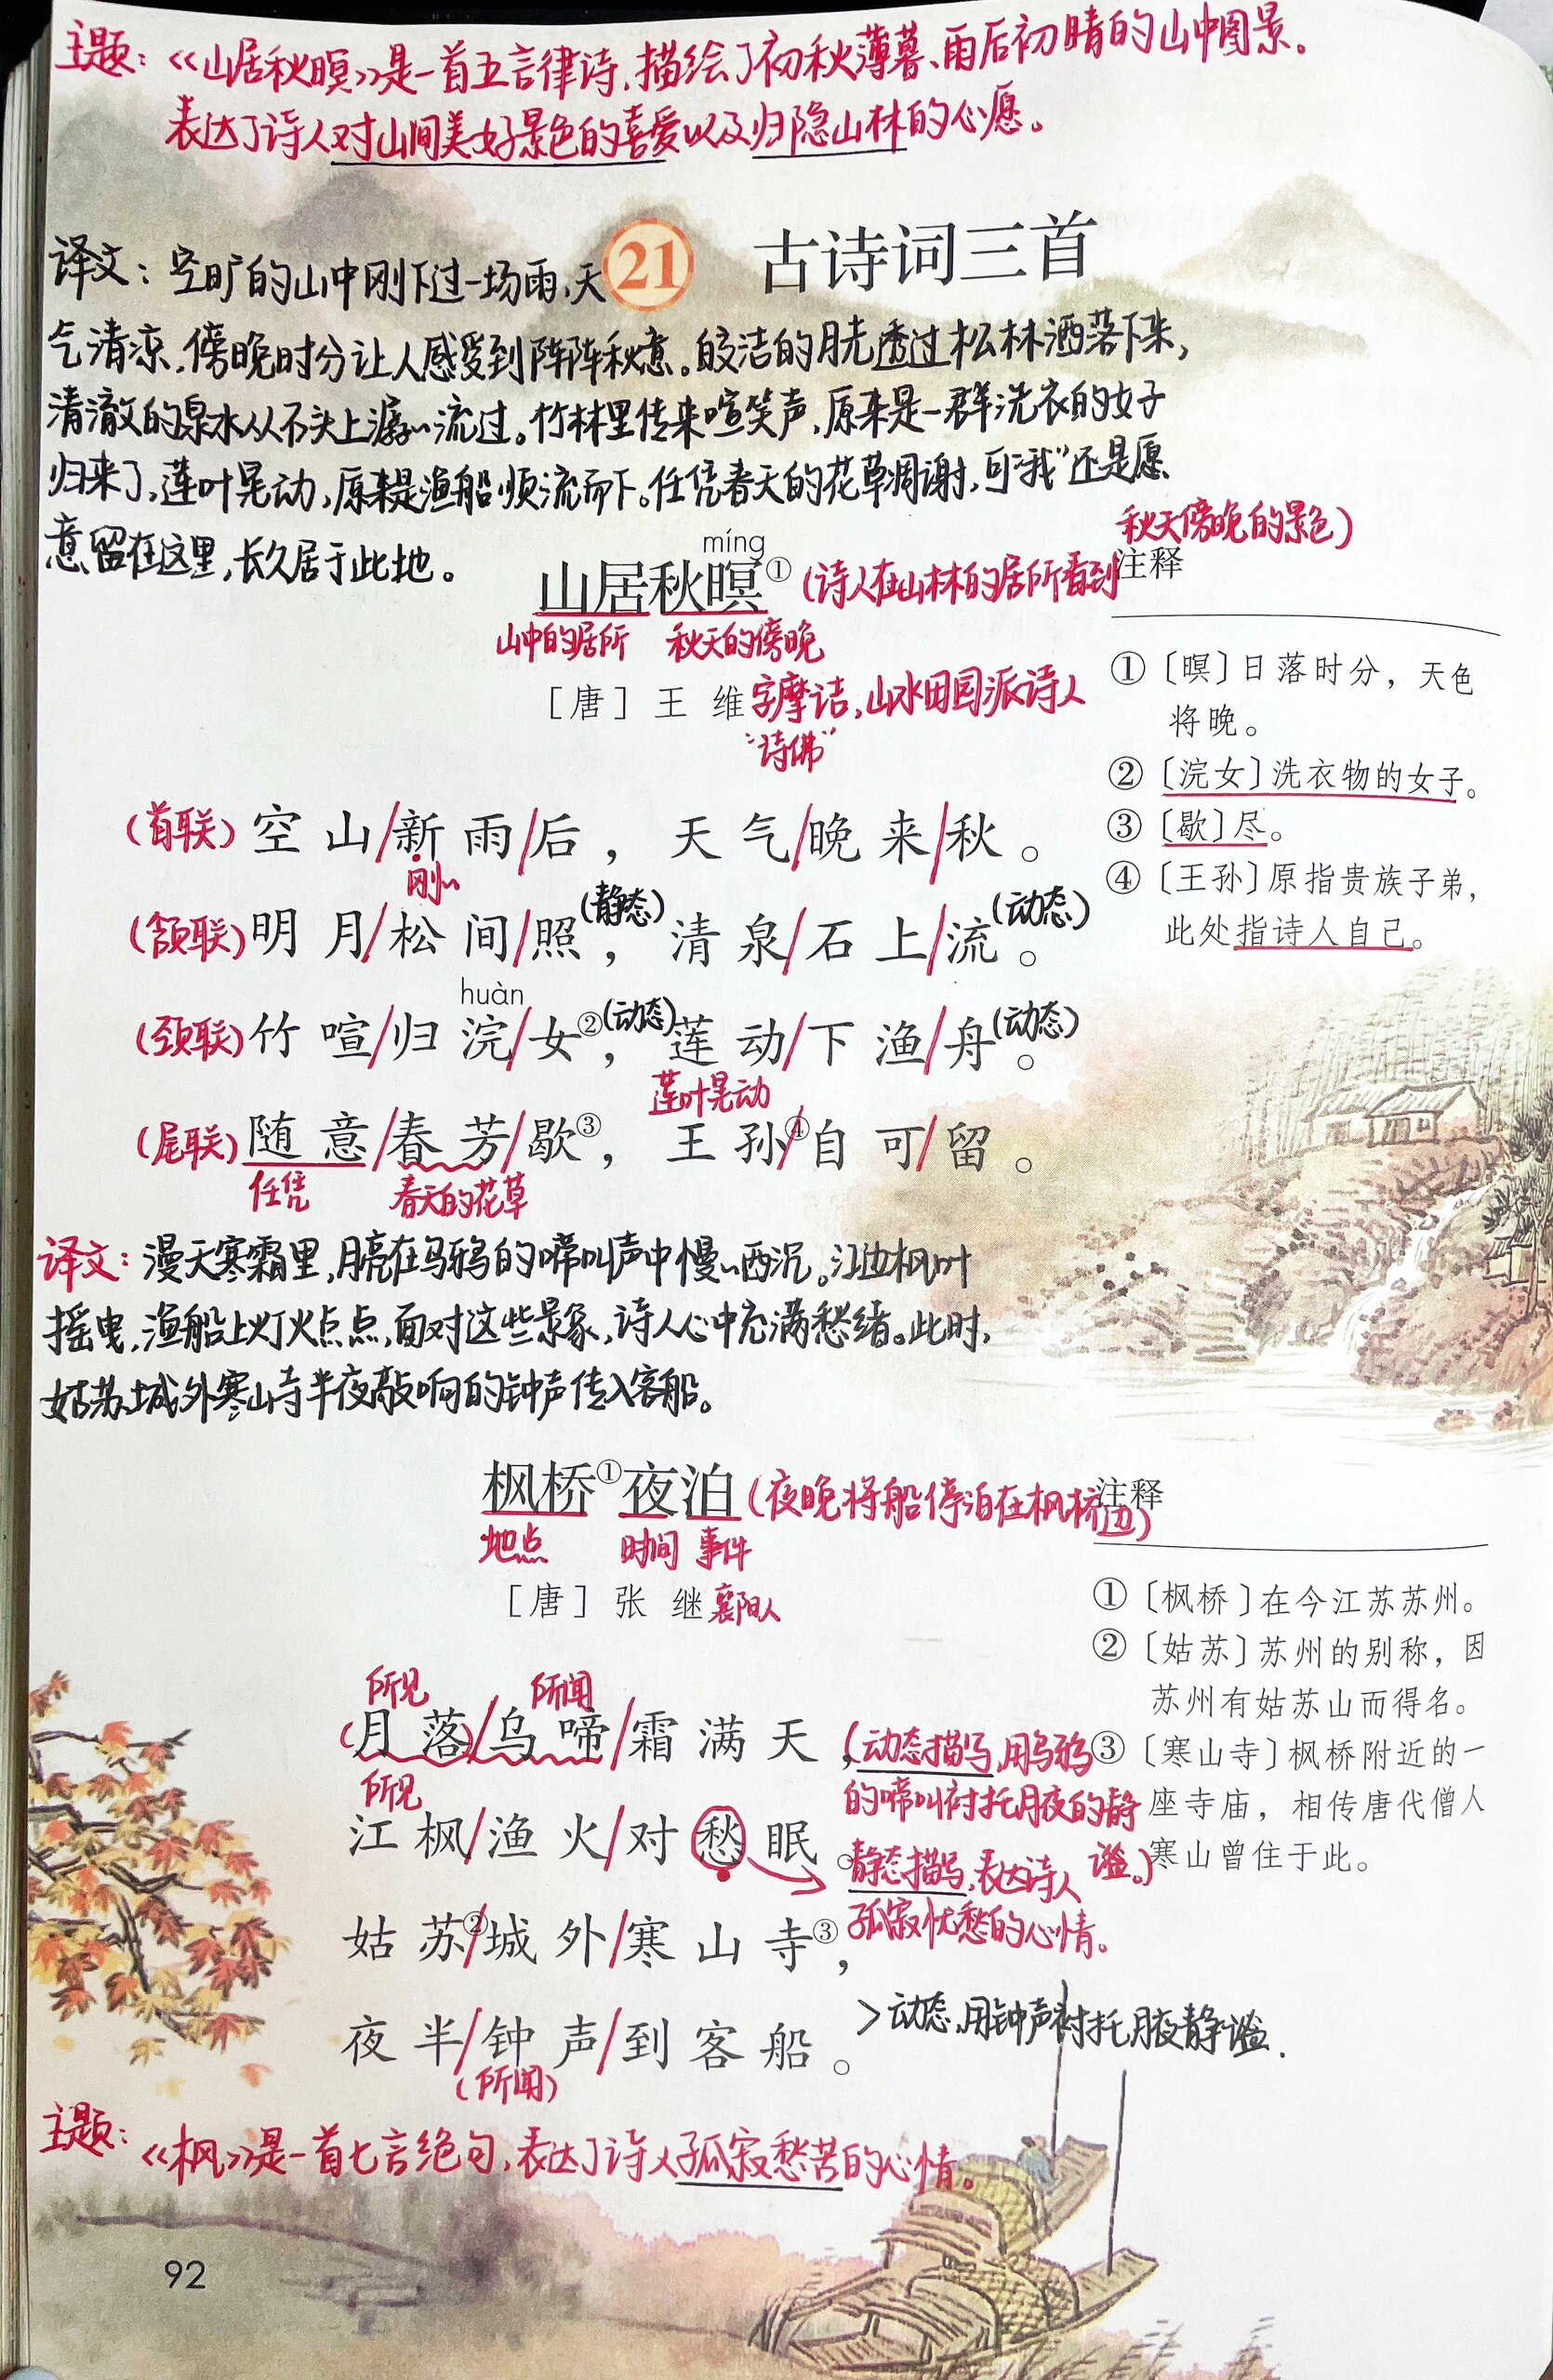 主题：《山居秋暝》是一首五言律诗，描绘了初秋薄暮、雨后初晴的山中图景。
表达了诗人对山间美好景色的喜爱以及归隐山林的心愿。
21 古诗词三首
译文：空旷的山中刚下过一场雨，天
气清凉，傍晚时分让人感受到阵阵秋意。皎洁的月光透过松林洒落下来，
清澈的泉水从石头上潺〃流过。竹林里传来喧笑声，原来是一群洗衣的女子
归来了，莲叶晃动，原来是渔船顺流而下。任凭春天的花草凋谢，可“我”还是愿
意留在这里，长久居于此地。
míng
山居秋暝① (诗人在山林的居所看到
秋天傍晚的景色)
山中的居所 秋天的傍晚
［唐］王 维 字摩诘，山水田园派诗人
“诗佛”
(首联) 空山/新雨/后，天气/晚来/秋。
刚〃
(颔联) 明月/松间/照(静态)，清泉/石上/流(动态)。
huàn
(颈联) 竹喧/归浣/女②(动态)，莲动/下渔/舟(动态)。
莲叶晃动
(尾联) 随意/春芳/歇③，王孙/④自可/留。
任凭 春天的花草
注释
①〔暝〕日落时分，天色
将晚。
②〔浣女〕洗衣物的女子。
③〔歇〕尽。
④〔王孙〕原指贵族子弟，
此处指诗人自己。
译文：漫天寒霜里，月亮在乌鸦的啼叫声中慢〃西沉。江边枫叶
摇曳，渔船上灯火点点，面对这些景象，诗人心中充满愁绪。此时，
姑苏城外寒山寺半夜敲响的钟声传入客船。
枫桥①夜泊 (夜晚将船停泊在枫桥
边)
地点 时间 事件
［唐］张 继 襄阳人
所见 所闻
(月落)/乌啼/霜满天，(动态描写，用乌鸦
的啼叫衬托月夜的静
谧。)
所见
江枫/渔火/对愁眠。
静态描写，表达诗人
孤寂忧愁的心情。
姑苏②/城外/寒山寺③，
夜半/钟声/到客船。
>动态，用钟声衬托月夜静谧.
(所闻)
注释
①〔枫桥〕在今江苏苏州。
②〔姑苏〕苏州的别称，因
苏州有姑苏山而得名。
③〔寒山寺〕枫桥附近的一
座寺庙，相传唐代僧人
寒山曾住于此。
主题：《枫》是一首七言绝句，表达了诗人孤寂愁苦的心情。
92